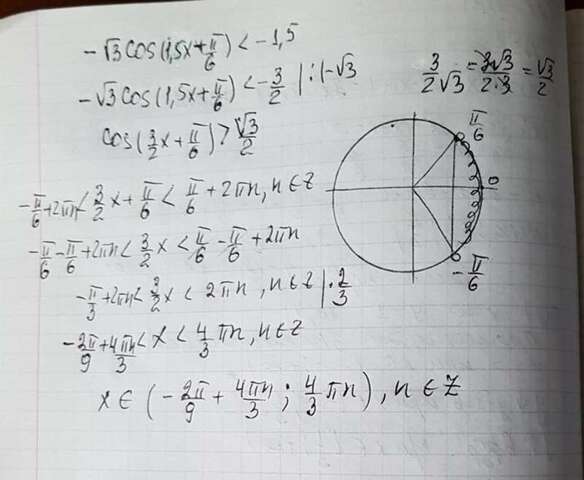 -√3 cos(1,5x+π/6) < -1,5
-√3 cos(1,5x+π/6) < -3/2 | :(-√3
3/2√3 = 3√3/2·3 = √3/2
cos(3/2x + π/6) > √3/2
π/6
0
-π/6
-π/6+2πn < 3/2x + π/6 < π/6 + 2πn, n∈Z
-π/6 - π/6 + 2πn < 3/2x < π/6 - π/6 + 2πn
-π/3 + 2πn < 3/2x < 2πn, n∈Z | · 2/3
-2π/9 + 4πn/3 < x < 4/3πn, n∈Z
x ∈ (-2π/9 + 4πn/3 ; 4/3πn), n ∈ Z